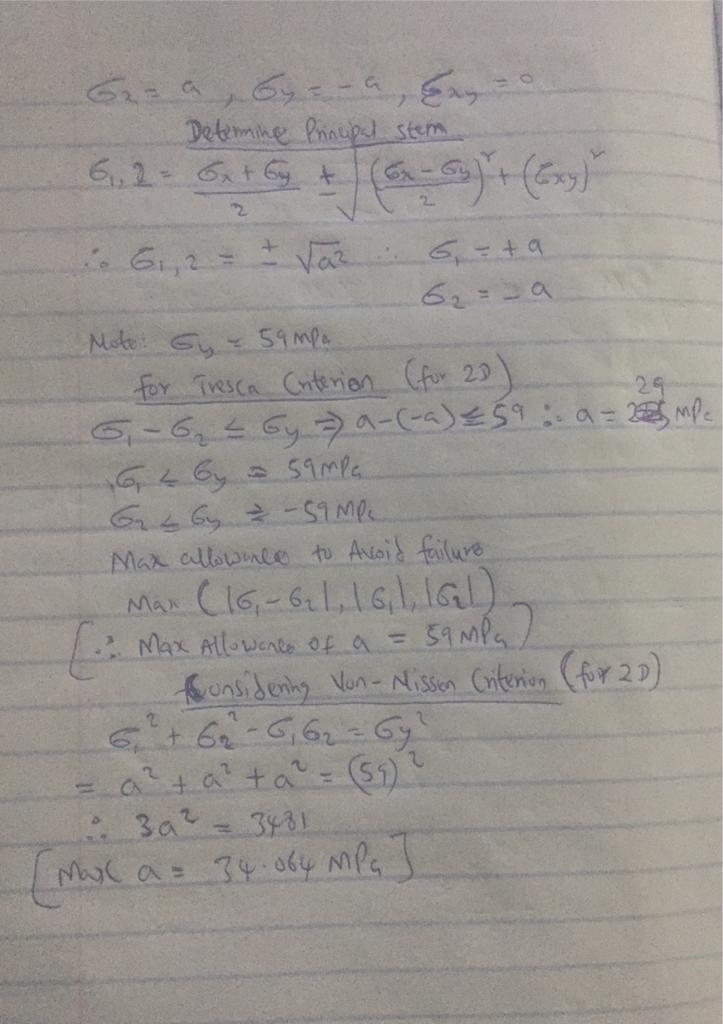 σx = a , σy = -a , τxy = 0
Determine Principal stem
σ1,2 = (σx + σy)/2 ± √((σx - σy)/2)² + (τxy)²
∴ σ1,2 = ± √a² ∴ σ1 = +a
σ2 = -a
Note: σy = 59 MPa
for Tresca Criterion (for 2D)
σ1 - σ2 ≤ σy ⇒ a-(-a) ≤ 59 ∴ a = 29 MPa
σ1 ≤ σy = 59 MPa
σ2 ≤ σy ≥ -59 MPa
Max allowance to Avoid failure
Max (|σ1-σ2|, |σ1|, |σ2|)
[∴ Max Allowance of a = 59 MPa]
Considering Von-Nissen Criterion (for 2D)
σ1² + σ2² - σ1σ2 = σy²
= a² + a² + a² = (59)²
∴ 3a² = 3481
[Max a = 34.064 MPa]